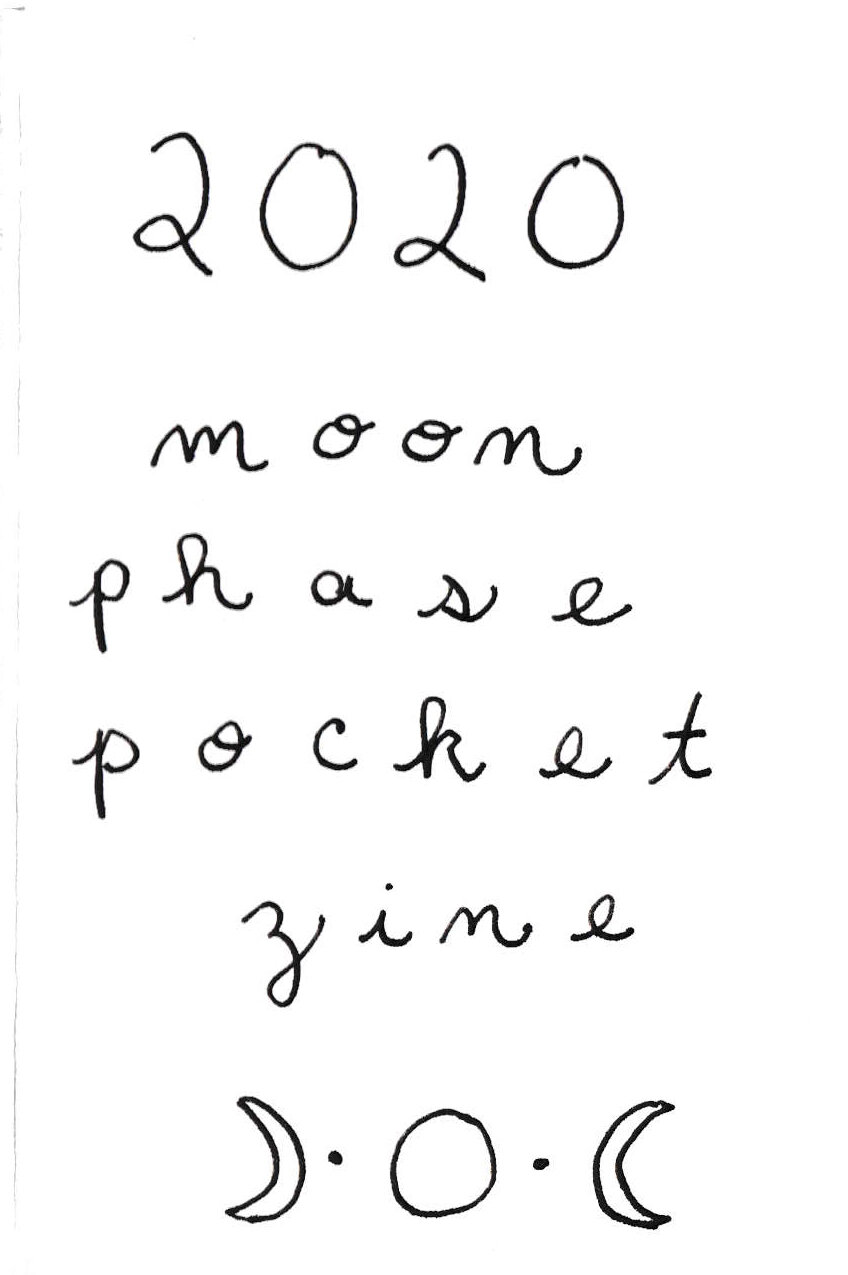 2020
moon
phase
pocket
zine